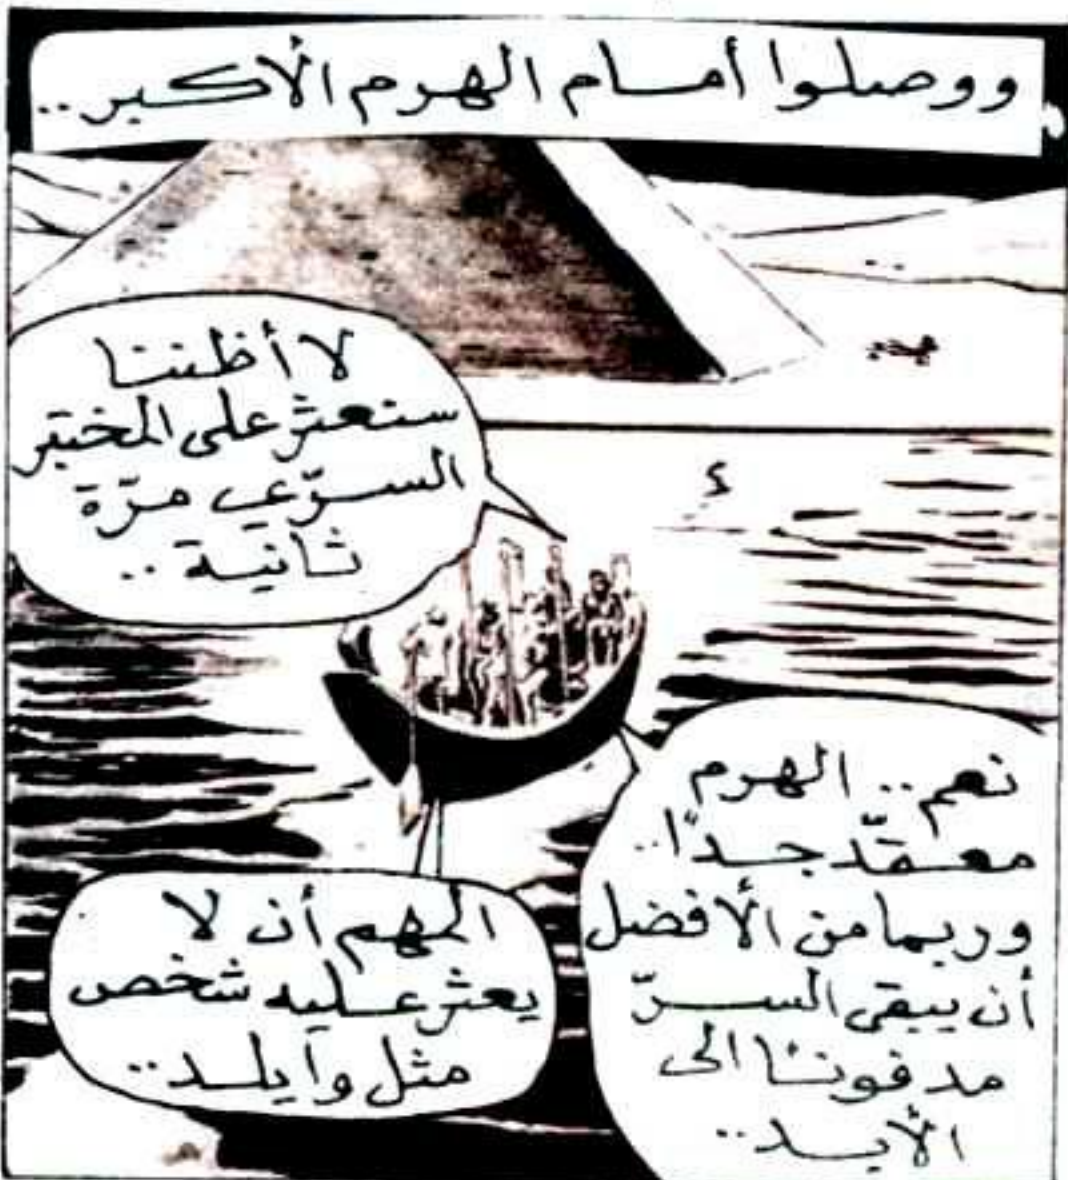 ووصلوا أمام الهرم الأكبر..
لا أظننا
سنعثر على المختبر
السرّي مرّة
ثانية..
نعم.. الهرم
معقّد جدًا..
وربما من الأفضل
أن يبقى السرّ
مدفونًا الى
الأبد..
المهم أن لا
يعثر عليه شخص
مثل وايلد..